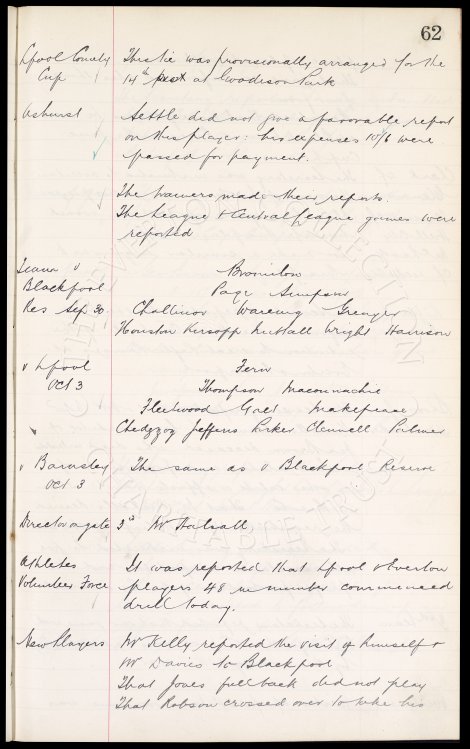 62
L'pool County Cup
This tie was provisionally arranged for the
14th at Goodison Park
Ashurst
Settle did not give a favorable report
on this player: his expenses 10/6 were
passed for payment.
The trainers made their reports.
The League & Central League games were
reported
Teams v
Blackpool
Res Sep 30.
Bromilow
Page Simpson
Challinor Wareing Grenyer
Houston Kirsopp Nuttall Wright Harrison
v L'pool
Oct 3
Fern
Thompson Maconnachie
Fleetwood Galt Makepeace
Chedgzoy Jefferis Parker Clennell Palmer
v Barnsley
Oct 3
The same as v Blackpool Reserve
Director a gate 3rd Mr Halsall
Athletes
Volunteer Force
It was reported that L'pool & Everton
players 48 in number commenced
drill today.
New Players
Mr Kelly reported the visit of himself &
Mr Davies to Blackpool
That Jones full back did not play
That Robson crossed over to take his
THE EVERTON COLLECTION
CHARITABLE TRUST